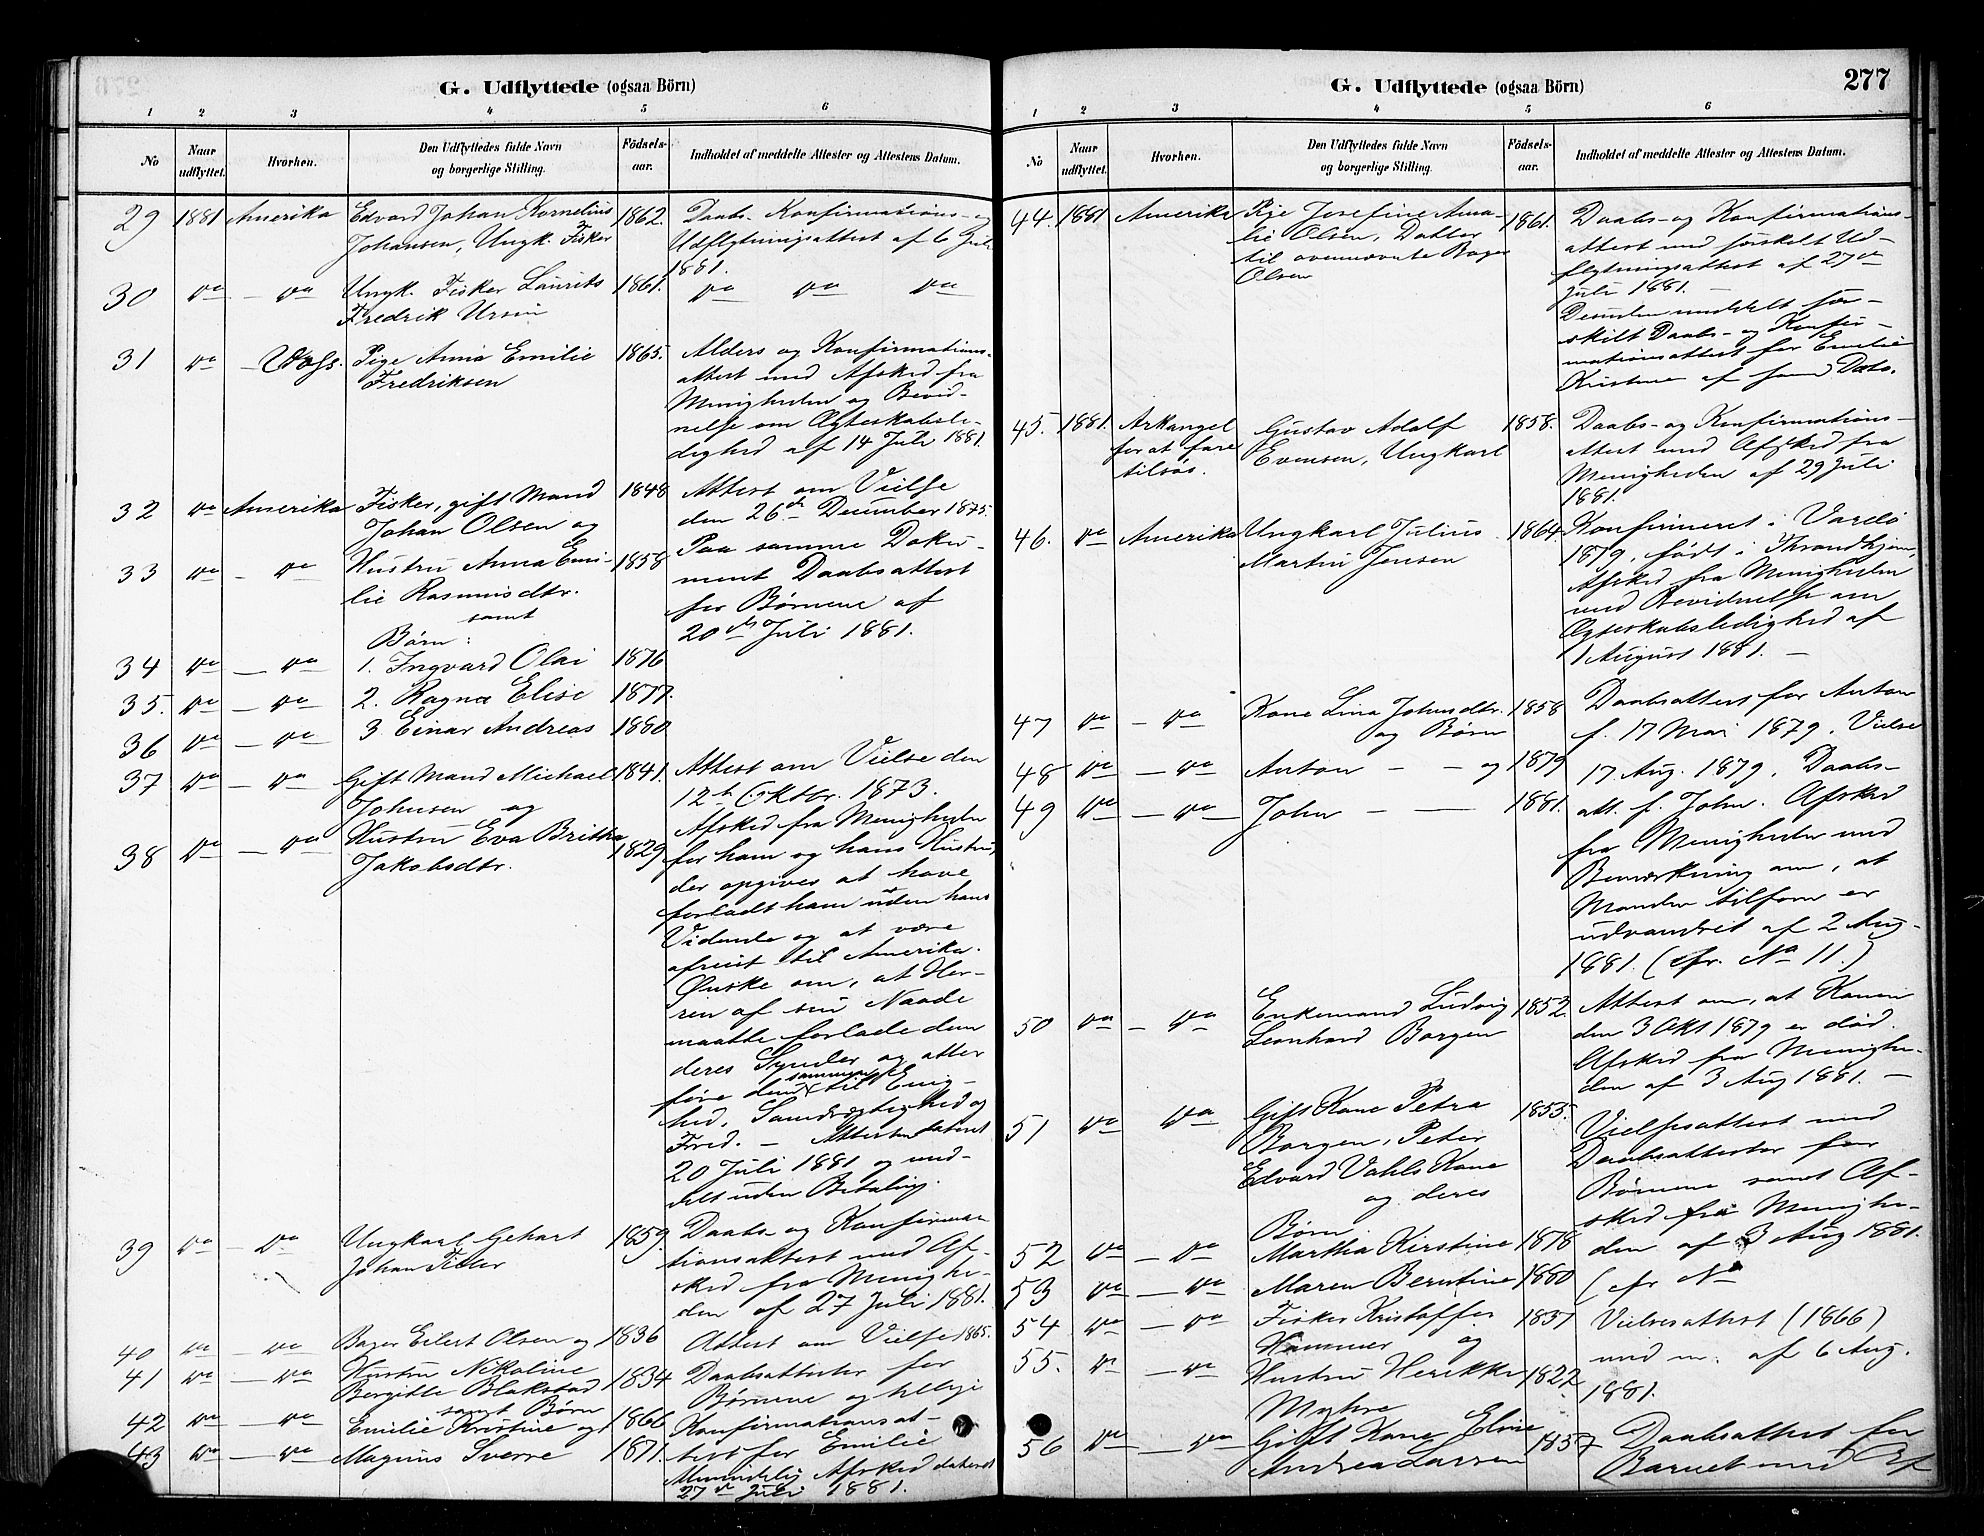 G. Udflyttede (ogsaa Börn)
1 2 3 4 5 6
No
Naar udflyttet.
Hvorhen.
Den Udflyttedes fulde Navn og borgerlige Stilling.
Födsels-aar.
Indholdet af meddelte Attester og Attestens Datum.
29 1881 Amerika Edvard Johan Kornelius 1862. Daabs- Konfirmations- og
Johansen, Ungk. Fisker Udflytningsattest af 6 Juli
1881.
30 do — do Ungk. Fisker Laurits 1861. do do do
Fredrik Ursin
31 do — Vags. Pige Anna Emilie 1865. Alders og Konfirmations-
Fredriksen attest med Afsked fra
Menigheden og Bevid-
nelse om Ægteskabsle-
dighed af 14 Juli 1881.
32 do Amerika Fisker, gift Mand 1848 Attest om Vielse
Johan Olsen og den 26de December 1875.
33 do — do Hustru Anna Emi- 1858 Paa samme Doku-
lie Rasmusdtr. ment Daabsattest
samt for Børnene af
Børn: 20de Juli 1881.
34 do — do 1. Ingvard Olai 1876
35. do — do 2. Ragna Elise 1877.
36 do — do 3 Einar Andreas 1880
37 do — do Gift Mand Michael 1841. Attest om Vielse den
Johnsen og 12te Oktbr. 1873.
38 do — do Hustru Eva Britha 1829 Afsked fra Menigheden
Jakobsdtr. for ham og hans Hustru,
der opgives at have
forladt ham uden hans
Vidende og at være
afreist til Amerika.
Ønske om, at Her-
ren af sin Naade
maatte forlade dem
deres Synder og atter
føre dem sammen til Enig-
hed, Samdrægtighed og
Fred. — Attesten dateret
20 Juli 1881 og med-
delt uden Betaling.
39 do — do Ungkarl Gehart 1859. Daabs- og Konfirma-
Johan Fisker tionsattest med Af-
sked fra Menighe-
den af 27 Juli 1881.
40 do — do Bager Eilert Olsen og 1836 Attest om Vielse 1865.
41 do — do Hustru Nikoline 1834 Daabsattester for
Bergitte Blakstad Børnene og tillige
samt Børn
42 do — do Emilie Kristine og 1866 Konfirmationsat-
43 do — do Magnus Sverre 1871. test for Emilie
Afsked dateret
27de Juli 1881.
G. Udflyttede (ogsaa Börn) 277
1 2 3 4 5 6
No
Naar udflyttet.
Hvorhen.
Den Udflyttedes fulde Navn og borgerlige Stilling.
Födsels-aar.
Indholdet af meddelte Attester og Attestens Datum.
44. 1881 Amerika Pige Josefine Ama- 1861. Daabs- og Konfirmations-
lie Olsen, Datter attest med særskilt Ud-
til ovennævnte Bager flytningsattest af 27de
Olsen Juli 1881. —
Desuden meddelt sær-
skilt Daabs- og Konfir-
mationsattest for Emilie
Kristine af samme Dato.
45. 1881. Arkangel Gustav Adolf 1858. Daabs- og Konfirmations-
for at fare Evensen, Ungkarl attest med Afsked fra
tilsøs. Menigheden af 29 Juli
1881.
46. do Amerika Ungkarl Julius 1864 Konfirmeret i Vardø
Martin Jensen 1879, født i Throndhjem,
Afsked fra Menigheden
med Bevidnelse om
Ægteskabsledighed af
1 August 1881. —
47 do — do Kone Lina Johnsdtr. 1858 Daabsattest for Anton
og Børn f. 17 Mai 1879, Vielse
48 do — do Anton — — og 1879 17 Aug. 1879. Daabs-
49 do — do John — — 1881. att. f. John. Afsked
fra Menigheden med
Bemærkning om, at
Manden tilforn er
udvandret af 2 Aug.
1881. (cfr. No 11.)
50 do — do Enkemand Ludvig 1852. Attest om, at Konen
Leonhard Borgen den 3 Okt 1879 er død.
Afsked fra Menighe-
den af 3 Aug 1881. —
51 do do Gift Kone Petra 1855. Vielsesattest med
Borgen, Peter Daabsattester for
Edvard Vahls Kone Børnene samt Af-
og deres sked fra Menighe-
Børn.
52 do — do Martha Kirstine 1878 den af 3 Aug 1881.
53 do — do Maren Berntine 1880 (cfr No
54 do — do Fisker Kristoffer 1837 Vielsesattest (1866)
Hammer og med m. af 6 Aug.
55. do — do Hustru Henrikke 1822 1881.
Myhre
56 do — do Gift Kone Eline 1857 Daabsattest for
Andrea Larsen Barnet med Af